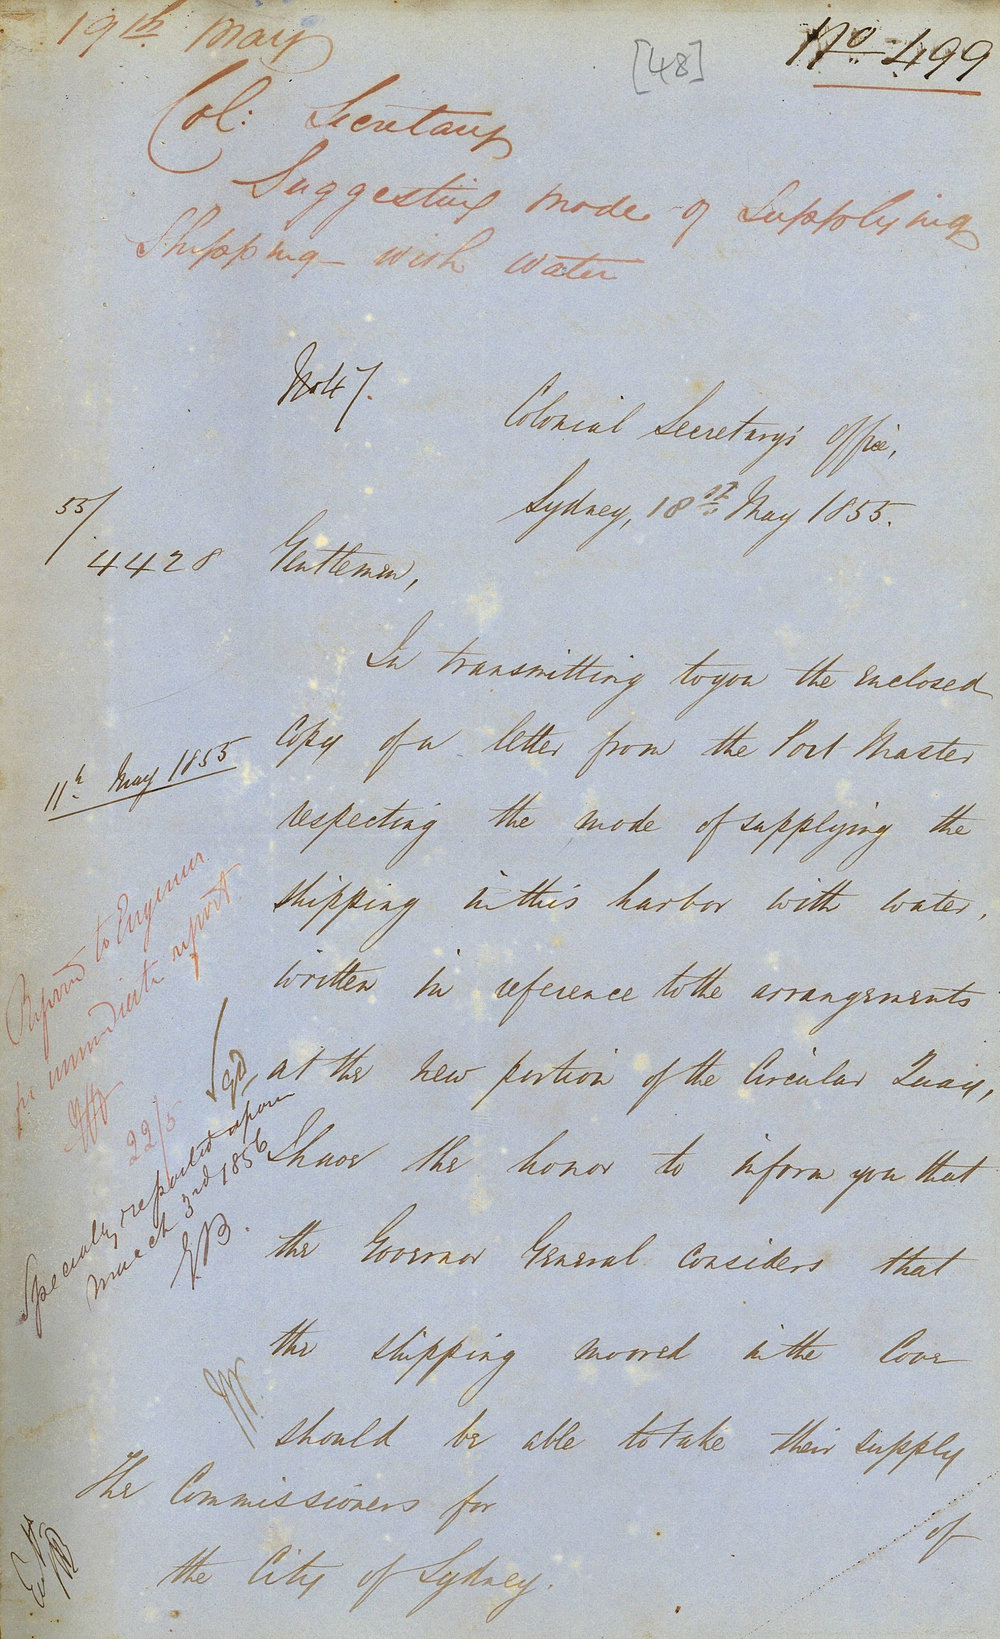 19th. May
[48]
No. 499
Col: Secretary
Suggesting mode of Supplying
Shipping with water
No 47.
Colonial Secretary's Office,
Sydney, 18th May 1855.
55/
4428
Gentlemen,
In transmitting to you the enclosed
Copy of a letter from the Port Master
11th May 1855
respecting the mode of supplying the
shipping in this harbor with water,
written in reference to the arrangements
at the new portion of the Circular Quay,
I have the honor to inform you that
the Governor General considers that
the shipping moored in the Cove
should be able to take their supply
of
The Commissioners for
the City of Sydney.
Referred to Engineer
for immediate report.
22/5
Specially reported upon
March 3rd 1856